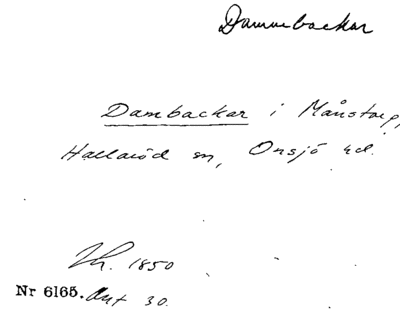 Dammebackar
Dambackar i Månstorp,
Hallaröd sn, Onsjö hd.
Th. 1850
Nr 6165. Ant 30.